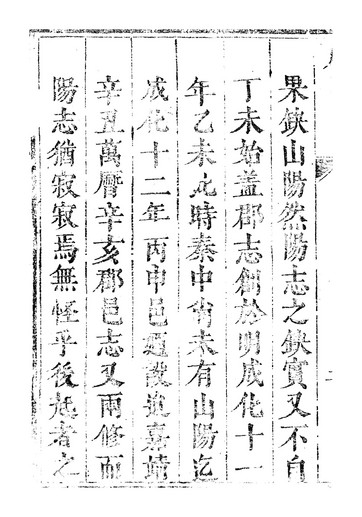 果缺山陽然陽志之缺實又不自
丁未始盖郡志創於明成化十一
年乙未此時秦中尚未有山陽迄
成化十二年丙申邑廼設迨嘉靖
辛丑萬曆辛亥郡邑志又兩修而
陽志猶寂寂焉無怪乎後起者之